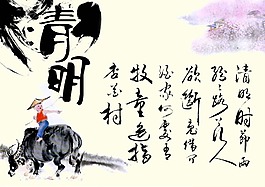 清明
清明時節雨
紛紛路上行人
欲斷魂借問
酒家何處有
牧童遥指
杏花村